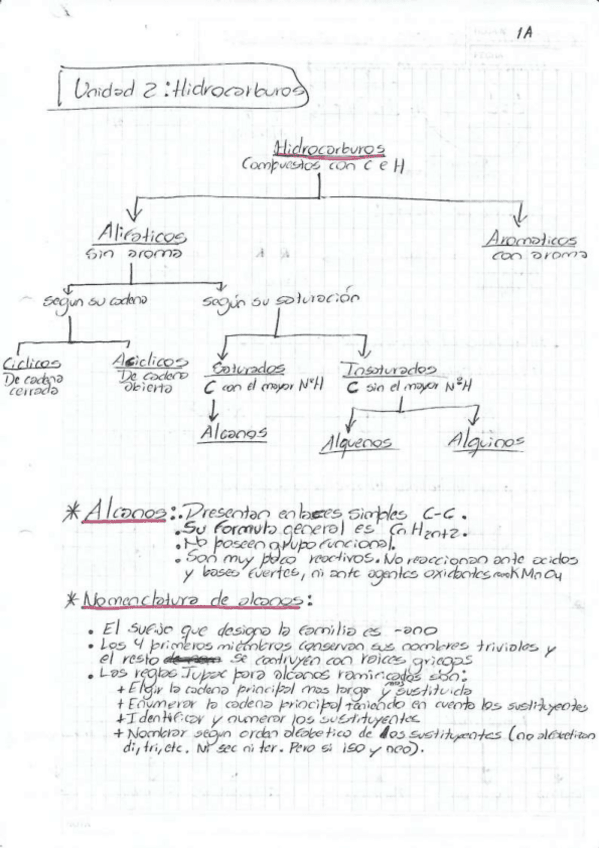 1A
Unidad 2: Hidrocarburos
Hidrocarburos
Compuestos con C e H
Alifaticos
sin aroma
Aromaticos
con aroma
según su cadena
según su saturación
Ciclicos
De cadena
cerrada
Aciclicos
De cadena
abierta
Saturados
C con el mayor NºH
Insaturados
C sin el mayor NºH
Alcanos
Alquenos
Alquinos
* Alcanos: • Presentan enlaces simples C-C.
• Su formula general es CnH2n+2.
• No poseen grupo funcional.
• Son muy poco reactivos. No reaccionan ante acidos
y bases fuertes, ni ante agentes oxidantes KMnO4
* Nomenclatura de alcanos:
• El sufijo que designa la familia es -ano
• Los 4 primeros miembros conservan sus nombres triviales y
el resto se contruyen con raices griegas
• Las reglas Iupac para alcanos ramificados son:
+ Elgir la cadena principal mas larga y mas sustituida
+ Enumerar la cadena principal teniendo en cuenta los sustituyentes
+ Identificar y numerar los sustituyentes
+ Nombrar segun orden alfabetico de los sustituyentes (no alfabetizan
di, tri, etc. Ni sec ni ter. Pero si iso y neo).